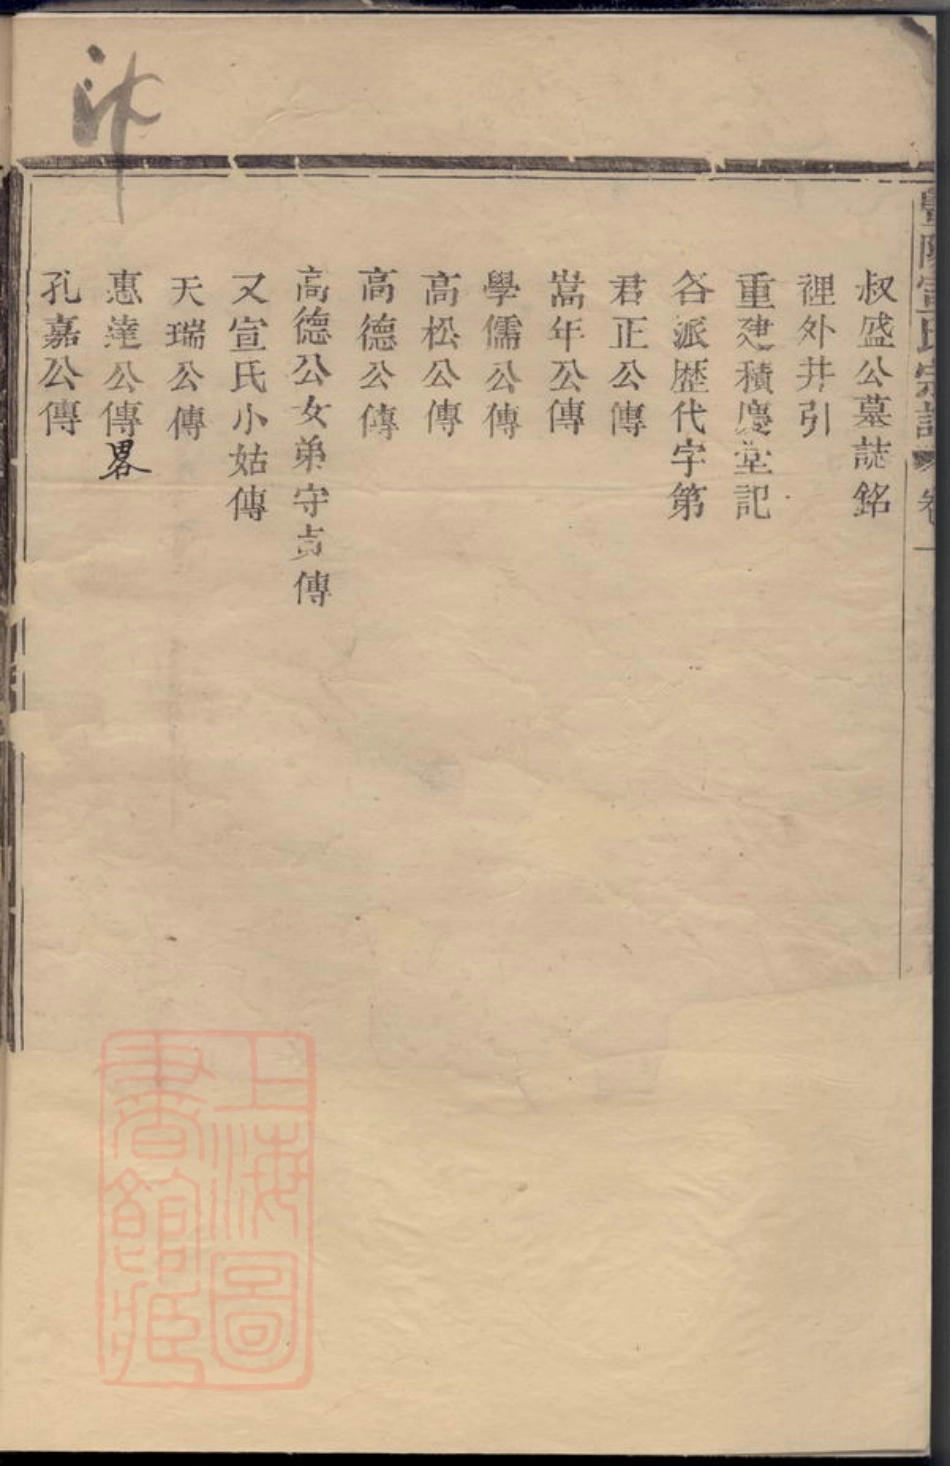 暨陽宣氏宗譜 卷一
叔盛公墓誌銘
裡外井引
重建積慶堂記
各派歷代字第
君正公傳
嵩年公傳
學儒公傳
高松公傳
高德公傳
高德公女弟守貞傳
又宣氏小姑傳
天瑞公傳
惠達公傳畧
孔嘉公傳
上海圖書館藏